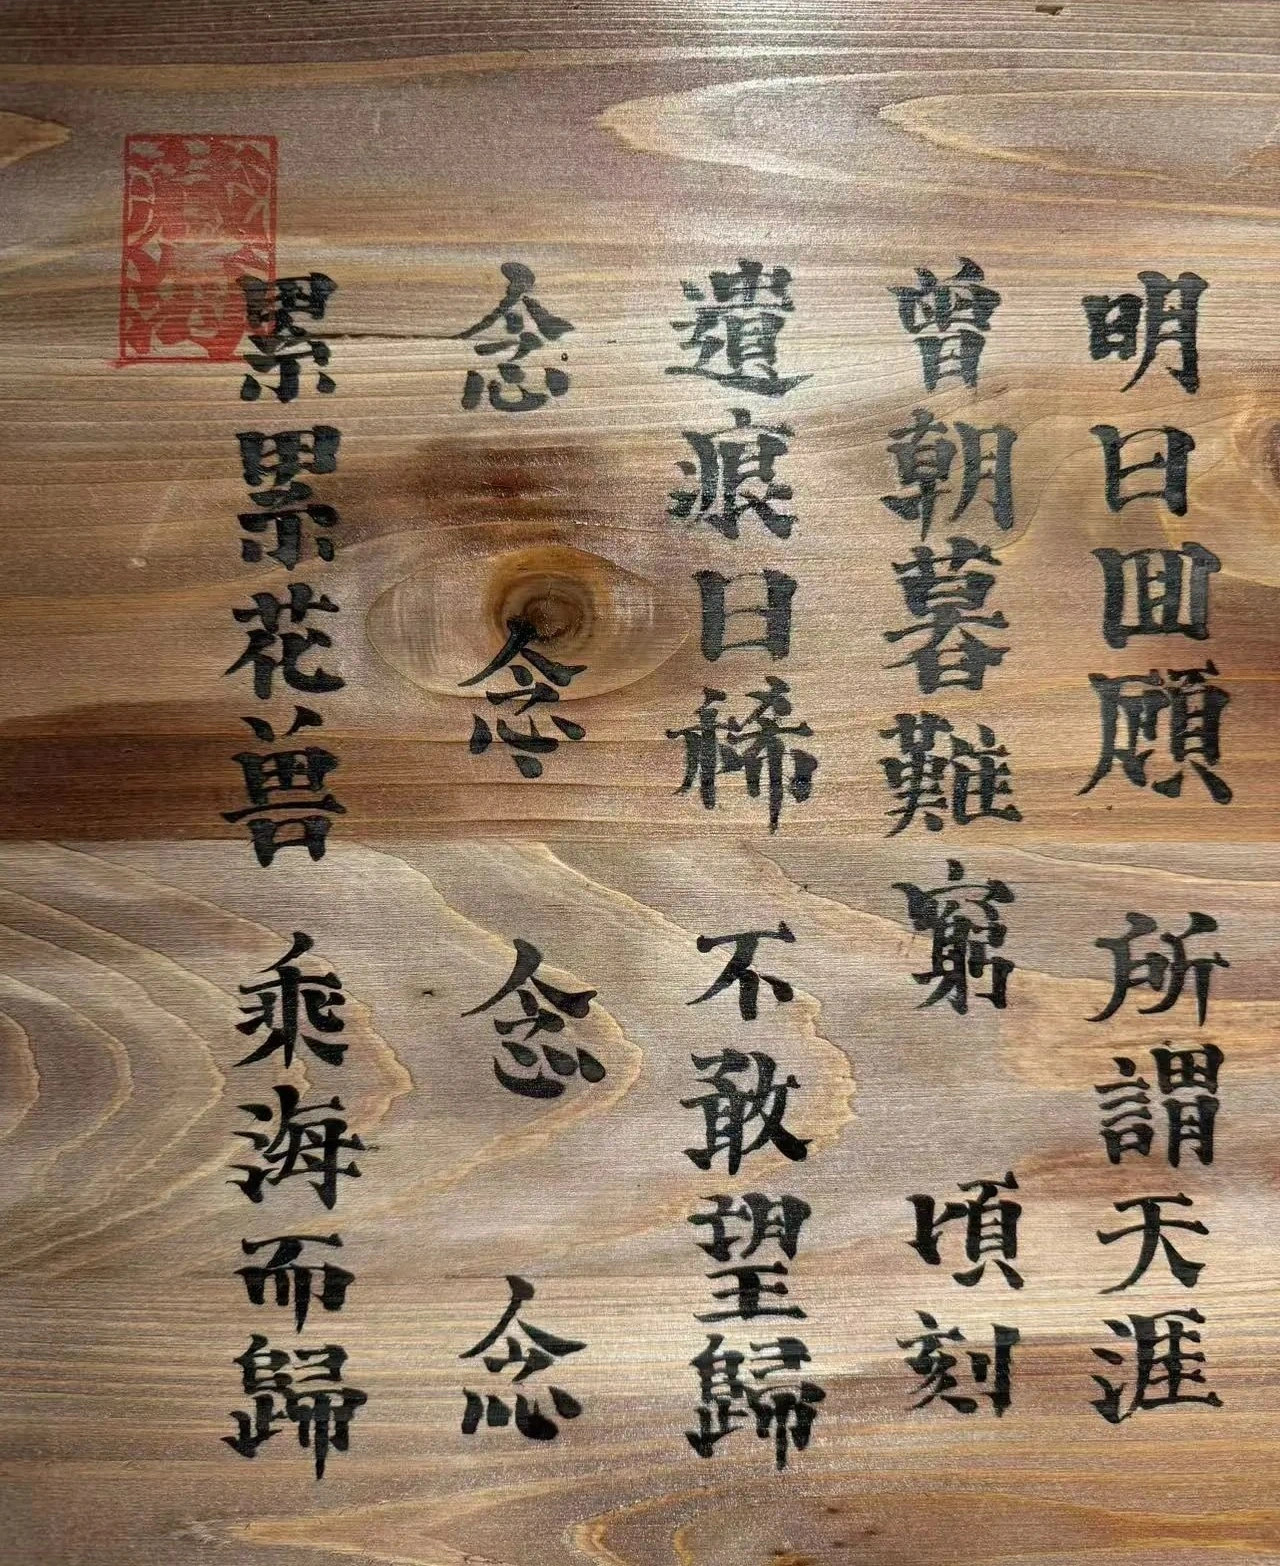 明日囬顧 所謂天涯
曾朝暮難窮 頃刻
遺痕日稀 不敢望歸
念 念 念 念
累累花兽 乘海而歸